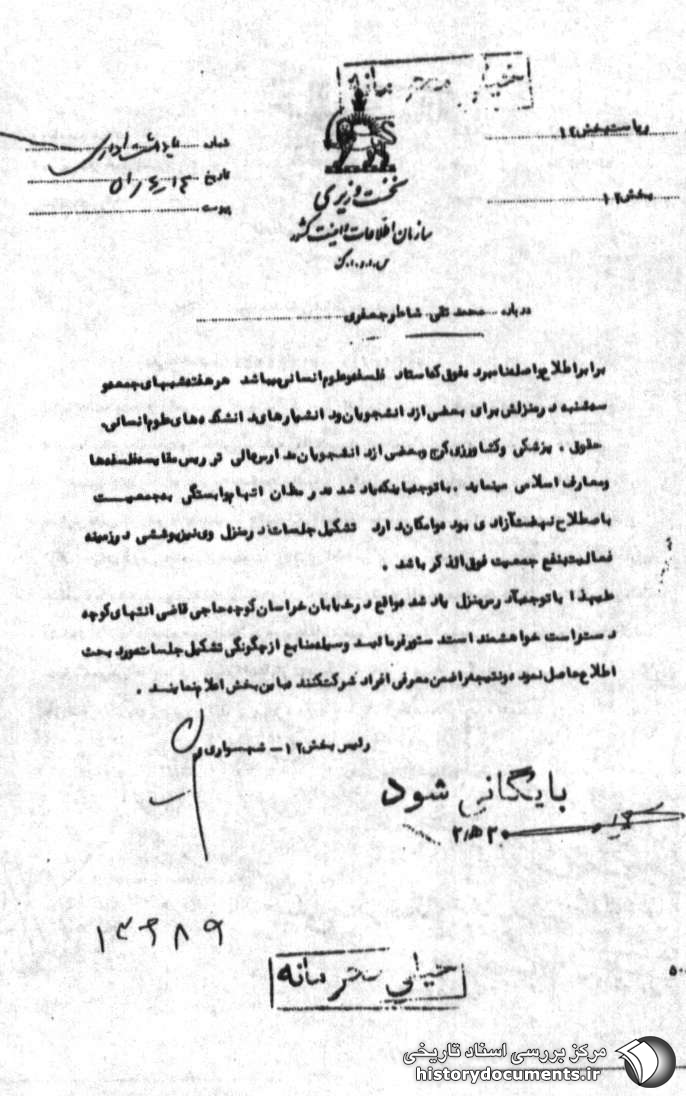 خیلی محرمانه
ریاست بخش ۱۲
بخش ۱۲
شماره
تاریخ ۵۱/۴/۱۴
پیوست
نخست وزیری
سازمان اطلاعات و امنیت کشور
س.ا.و.ا.ک
درباره محمد تقی شاطر جعفری
برابر اطلاع واصله نامبرده فوق که استاد فلسفه و علوم انسانی میباشد هر هفته شبهای جمعه و
سه شنبه در منزلش برای بعضی از دانشجویان و دانشیارهای دانشکده های علوم انسانی،
حقوق، پزشکی و کشاورزی کرج و بعضی از دانشجویان مدارس عالی تدریس مقایسه فلسفه ها
و معارف اسلامی مینماید. با توجه باینکه یاد شده در مظان اتهام وابستگی به جمعیت
باصطلاح نهضت آزادی بوده و امکان دارد تشکیل جلسات در منزل وی نیز پوششی در زمینه
فعالیت بنفع جمعیت فوق الذکر باشد.
علیهذا با توجه به آدرس منزل یاد شده واقع در خیابان خراسان کوچه حاجی قاضی انتهای کوچه
دست راست خواهشمند است دستور فرمائید وسیله منابع از چگونگی تشکیل جلسات مورد بحث
اطلاع حاصل نموده و نتیجه را ضمن معرفی افراد شرکت کننده باین بخش اعلام نمایند.
رئیس بخش ۱۲ - شهسواری
بایگانی شود
۱۳۶۸۹
خیلی محرمانه
۵۰۰
مرکز بررسی اسناد تاریخی
historydocuments.ir